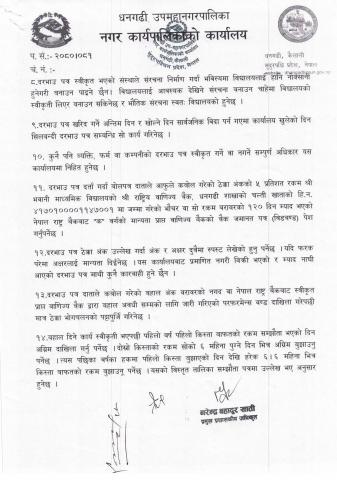 धनगढी उपमहानगरपालिका
नगर कार्यपालिकाको कार्यालय
प. सं.: २०८०।०८१
च. नं. :
धनगढी, कैलाली
सुदूरपश्चिम प्रदेश, नेपाल
८.दरभाउ पत्र स्वीकृत भएको संस्थाले संरचना निर्माण गर्दा भविष्यमा विद्यालयलाई हानि नोक्सानी
हुनेगरी बनाउन पाइने छैन। विद्यालयलाई आवश्यक देखिने संरचना बनाउन चाहेमा विद्यालयको
स्वीकृती लिएर बनाउन सकिनेछ र भौतिक संरचना स्वतः विद्यालयको हुनेछ ।
९.दरभाउ पत्र खरिद गर्ने अन्तिम दिन र खोल्ने दिन सार्वजनिक बिदा पर्न गएमा कार्यालय खुलेको दिन
सिलवन्दी दरभाउ पत्र सम्बन्धि सो कार्य गरिनेछ ।
१०. कुनै पनि व्यक्ति, फर्म वा कम्पनीको दरभाउ पत्र स्वीकृत गर्ने वा नगर्ने सम्पुर्ण अधिकार यस
कार्यालयमा निहित हुनेछ ।
११. दरभाउ पत्र दर्ता गर्दा वोलपत्र दाताले आफुले कवोल गरेको ठेक्का अंकको ५ प्रतिशत रकम श्री
भवानी माध्यमिक विद्यालयको श्री राष्ट्रिय वाणिज्य बैंक, धनगढी शाखाको धरौटी खाताको हि.न.
४१७०१००००११४७००१ मा जम्मा गरेको भौचर वा सो रकम बराबरको १२० दिन म्याद भएको
नेपाल राष्ट्र बैंकबाट "क" वर्गको मान्यता प्राप्त वाणिज्य बैंकको बैंक जमानत पत्र (बिडबण्ड) पेश
गर्नुपर्नेछ ।
१२.दरभाउ पत्र ठेक्का अंक उल्लेख गर्दा अंक र अक्षर दुवैमा स्पस्ट लेखेको हुनु पर्नेछ । यदि फरक
परेमा अक्षरलाई मान्यता दिईनेछ । यस कार्यालयबाट प्रमाणित नगरी बिक्री भएको र म्याद नाघी
आएको दरभाउ पत्र माथी कुनै कारवाही हुने छैन ।
१३.दरभाउ पत्र दाताले कवोल गरेको बहाल अंक बराबरको नगद वा नेपाल राष्ट्र बैंकबाट स्वीकृत
प्राप्त वाणिज्य बैंक द्वारा बहाल अवधी सम्मको लागि जारी गरिएको परफरमेन्स बण्ड दाखिला गरेपछी
मात्र ठेक्का भोगचलनको पट्टापुर्जि गरिनेछ ।
१४.बहाल दिने कार्य स्वीकृती भएपछी पहिलो वर्ष पहिलो किस्ता वाफतको रकम सम्झौता भएको दिन
अग्रिम दाखिला गर्नु पर्नेछ । दोस्रो किस्ताको रकम सोको ६ महिना पुग्ने दिन भित्र अग्रिम बुझाउनु
पर्नेछ । त्यस पछिका वर्षका हकमा पहिलो किस्ता बुझाएको दिन देखि हरेक ६।६ महिना भित्र
किस्ता वाफतको रकम बुझाउनु पर्नेछ । यसको विस्तृत तालिका सम्झौता पत्रमा उल्लेख भए अनुसार
हुनेछ ।
नरेन्द्र बहादुर खाती
प्रमुख प्रशासकीय अधिकृत